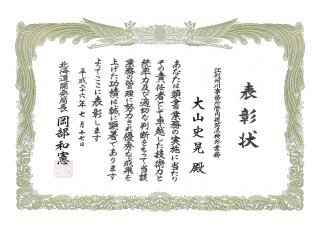 表彰状
江別河川事務所管内堤防点検外業務
大山史晃 殿
あなたは頭書業務の実施に当たり
その責任者として卓越した技術力と
統率力及び適切な判断をもって当該
業務の管理に努力され優秀な成果を
上げた功績は誠に顕著であります
よってここに表彰します
平成二十六年七月十七日
北海道開発局長 岡部和憲